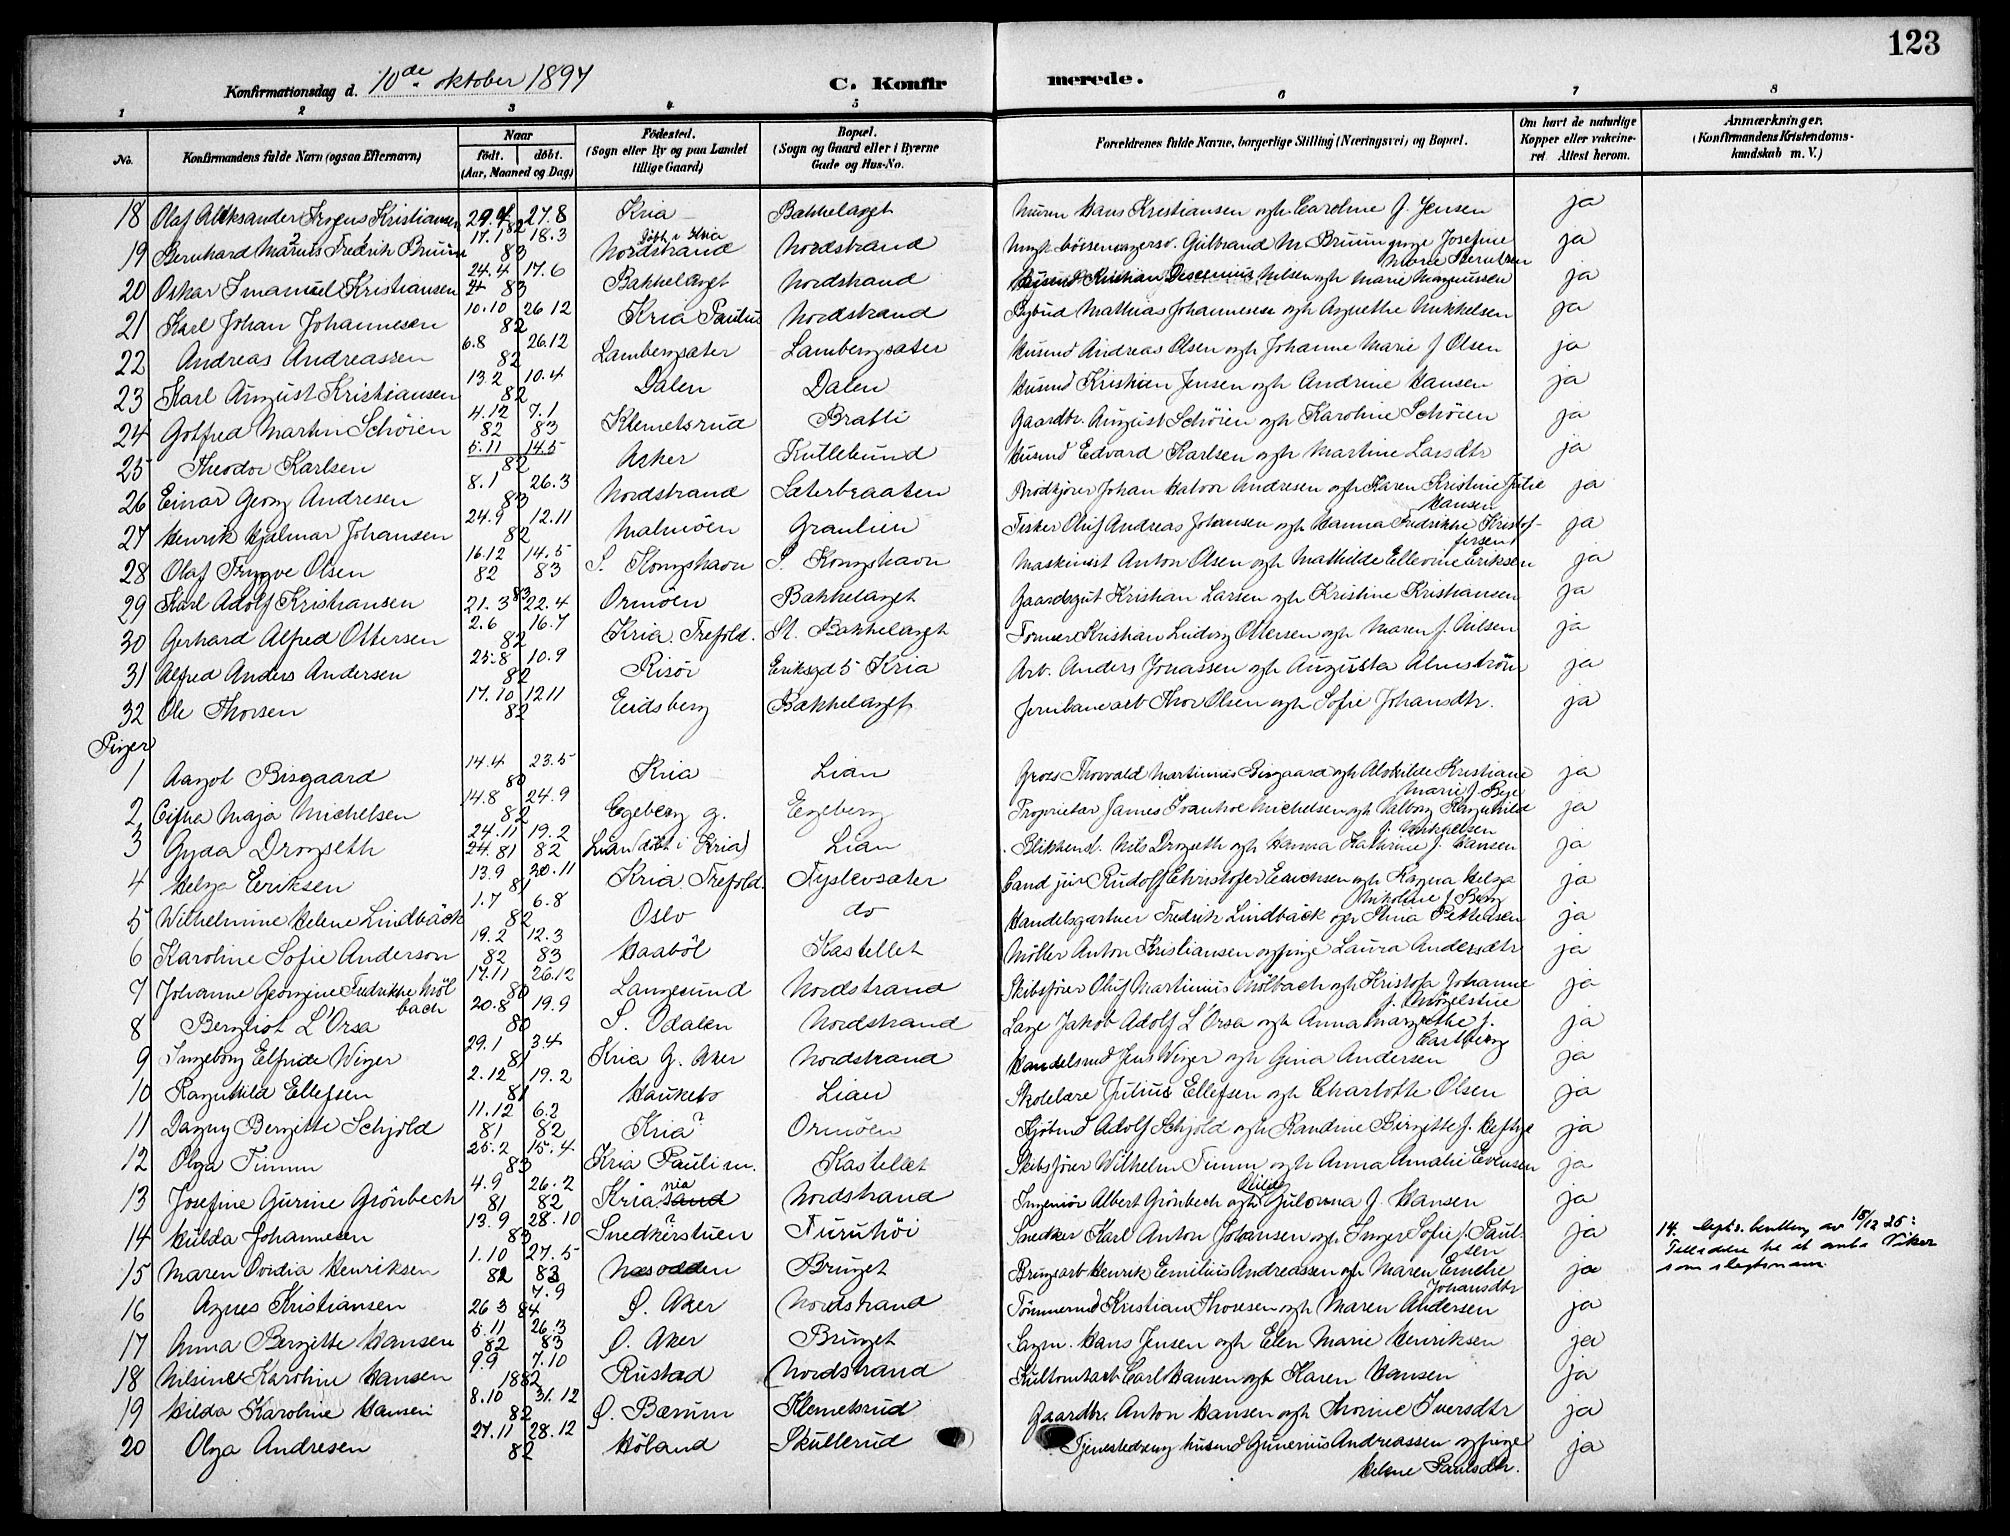 123
Konfirmationsdag d. 10de oktober 1897 C. Konfirmerede.
1 2 3 4 5 6 7 8
No. Konfirmandens fulde Navn (ogsaa Efternavn) Naar født. døbt. (Aar, Maaned og Dag) Fødested. (Sogn eller By og paa Landet tillige Gaard) Bopæl. (Sogn og Gaard eller i Byerne Gade og Hus-No. Forældrenes fulde Navne, borgerlige Stilling (Næringsvei) og Bopæl. Om havt de naturlige Kopper eller vakcineret Attest herom. Anmærkninger. (Konfirmandens Kristendomskundskab m. V.)
18 Olaf Aleksander Kristiansen 29.4 27.8 82 Kria Bækkelaget Murer Hans Kristiansen ogh Caroline f. Jensen ja
19 Bernhard Marius Fredrik Bruun 17.1 18.3 83 Nordstrand døbt i Kria Nordstrand Gulbrand M Bruun Josefine Marie Berntsen ja
20 Oskar Imanuel Kristiansen 24.4 17.6 83 Bækkelaget Nordstrand Husmd Kristian Nilsen ogh Marie Magnussen ja
21 Karl Johan Johannesen 10.10 26 12 82 Kria Paulus Nordstrand Mathias Johannesen ogh Agnethe Mikkelsen ja
22 Andreas Andreassen 6.8 26.12 82 Lambergsæter Lambergsæter Husmd Andreas Olsen ogh Johanne Marie f Olsen ja
23 Karl August Kristiansen 13 2 10.4 82 Dalen Dalen Husmd Kristian Jensen ogh Andrine Hansen ja
24 Gotfred Martin Schöien 4.12 7.1 82 83 Klemetsrud Bratli Gaardbr. August Schöien ogh Karoline Schöien ja
25 Theodor Karlsen 5.11 14.5 82 Asker Kullebund Husmd Edvard Karlsen ogh Martine Larsdtr ja
26 Einar Georg Andresen 8.1 26.3 83 Nordstrand Sæterbraaten Brødkjører Johan Halvor Andresen ogh Karen Kristine Julie Hansen ja
27 Henrik Hjalmar Johansen 24.9 12.11 82 Malmøen Granlien Fisker Oluf Andreas Johansen ogh Hanna Fredrikke Kristoffersen ja
28 Olaf Trygve Olsen 16.12 14.5 82 83 S. Kongshavn S. Kongshavn Maskinist Anton Olsen ogh Mathilde Ellevine Eriksen ja
29 Karl Adolf Kristiansen 21.3 83 22.4 Ormøen Bækkelaget Gaardsgut Kristian Larsen ogh Kristine Kristiansen ja
30 Gerhard Alfred Ottersen 2.6 16.7 82 Kria Trefold. St. Bækkelaget Kristian Ludvig Ottersen ogh Maren f. Nilsen ja
31 Alfred Anders Andersen 25.8 10.9 82 Risör Eriksgd 5 Kria Arb. Anders Jonassen ogh Augusta Almström ja
32 Ole Thorsen 17.10 12 11 82 Eidsberg Bækkelaget Jernbanearb Thor Olsen ogh Sofie Johansdtr. ja
Piger
1 Aagot Bisgaard 14.4 23.5 80 Kria Lian Gross Thorvald Martinius Bisgaard ogh Alvhilde Kristiane Marie f. Bye ja
2 Maja Michelsen 14.8 24.9 82 Egeberg g. Egeberg Proprietær James Ivanhoe Michelsen ogh Valborg Ragnhild f. Mikkelsen ja
3 Gyda Drogseth 24.11 19.2 24.81 82 Lian (döbt i Kria) Lian Blikkensl. Nils Drogseth ogh Hanna Kathrine f. Hansen ja
4 Helga Eriksen 13.9 30.11 81 Kria Trefold. Tyslevsæter Cand jur Rudolf Christofer Erichsen ogh Ragna Helga Nikoline f. Berg ja
5 Wilhelmine Helene Lindbäck 1.7 6.8 82 Oslo do Handelsgartner Fredrik Lindbäck ogh Stina Pettersen ja
6 Karoline Sofie Anderson 19.2 12.3 82 83 Haaböl Kastellet Möller Anton Kristiansen ogpige Laura Andersdtr ja
7 Johanne Georgine Fredrikke Mölbach 17.11 26.12 80 Langesund Nordstrand Skibsfører Oluf Martinius Mölbach ogh Kristofa Johanne f. Mögelstue ja
8 Bergliot L'Orsa 20.8 19.9 80 S. Odalen Nordstrand Læge Jakob Adolf L'Orsa ogh Anna Margrethe f. Carlberg ja
9 Ingeborg Elfride Winger 29.1 3.4 81 Kria G. Aker Nordstrand Handelsmd Jens Winger ogh Gina Andersen ja
10 Ragnhild Ellefsen 2.12 19.2 81 Hauketo Lian Skolelære Julius Ellefsen ogh Charlotte Olsen ja
11 Dagny Bergitte Schjold 11.12 6.2 81 82 Kria? Ormøen Kjøbmd Adolf Schjold ogh Randine Birgitte f. Heftye ja
12 Olga Timm 25.2 15.4 83 Kria Paulim. Kastellet Skibsfører Wilhelm Timm ogh Anna Amalie Evensen ja
13 Josefine Gurine Grönbech 4.9 26.2 81 82 Kria.nia Nordstrand Ingeniør Albert Grönbech ogh Gulovna f. Hansen ja
14 Hilda Johannesen 13.9 28.10 83 Snedkerstuen? Furuhöi Snedker Karl Anton Johansen ogh Inger Sofie f. Paulsen ja 14. bevilling av 15/12 25: Tilladelse til at anta Viker som slegtsnavn.
15 Maren Ovidia Henriksen 1.10 27.5 82 83 Næsodden Bruget Brugsarb Henrik Emilius Andreassen ogh Maren Emelie Johansdtr ja
16 Agnes Kristiansen 26 3 7.9 84 Ø. Aker Nordstrand Tömmermd Kristian Thoresen ogh Maren Andersen ja
17 Anna Bergitte Hansen 5.11 26.3 82 83 Ø. Aker Bruget Sagm. Hans Jensen ogh Elen Marie Henriksen ja
18 Nilsine Karoline Hansen 9.9 7.10 1882 Rustad Nordstrand Kultomtarb Carl Hansen ogh Karen Hansen ja
19 Hilda Karoline Hansen 8.10 31.12 82 Ø. Bærum Klemetsrud Gaardbr. Anton Hansen ogh Thorine Iversdtr ja
20 Olga Andresen 27.11 28.12 82 Höland Skullerud Tjenestedreng husmd Gunerius Andreassen ogpige Helene Paulsdtr. ja